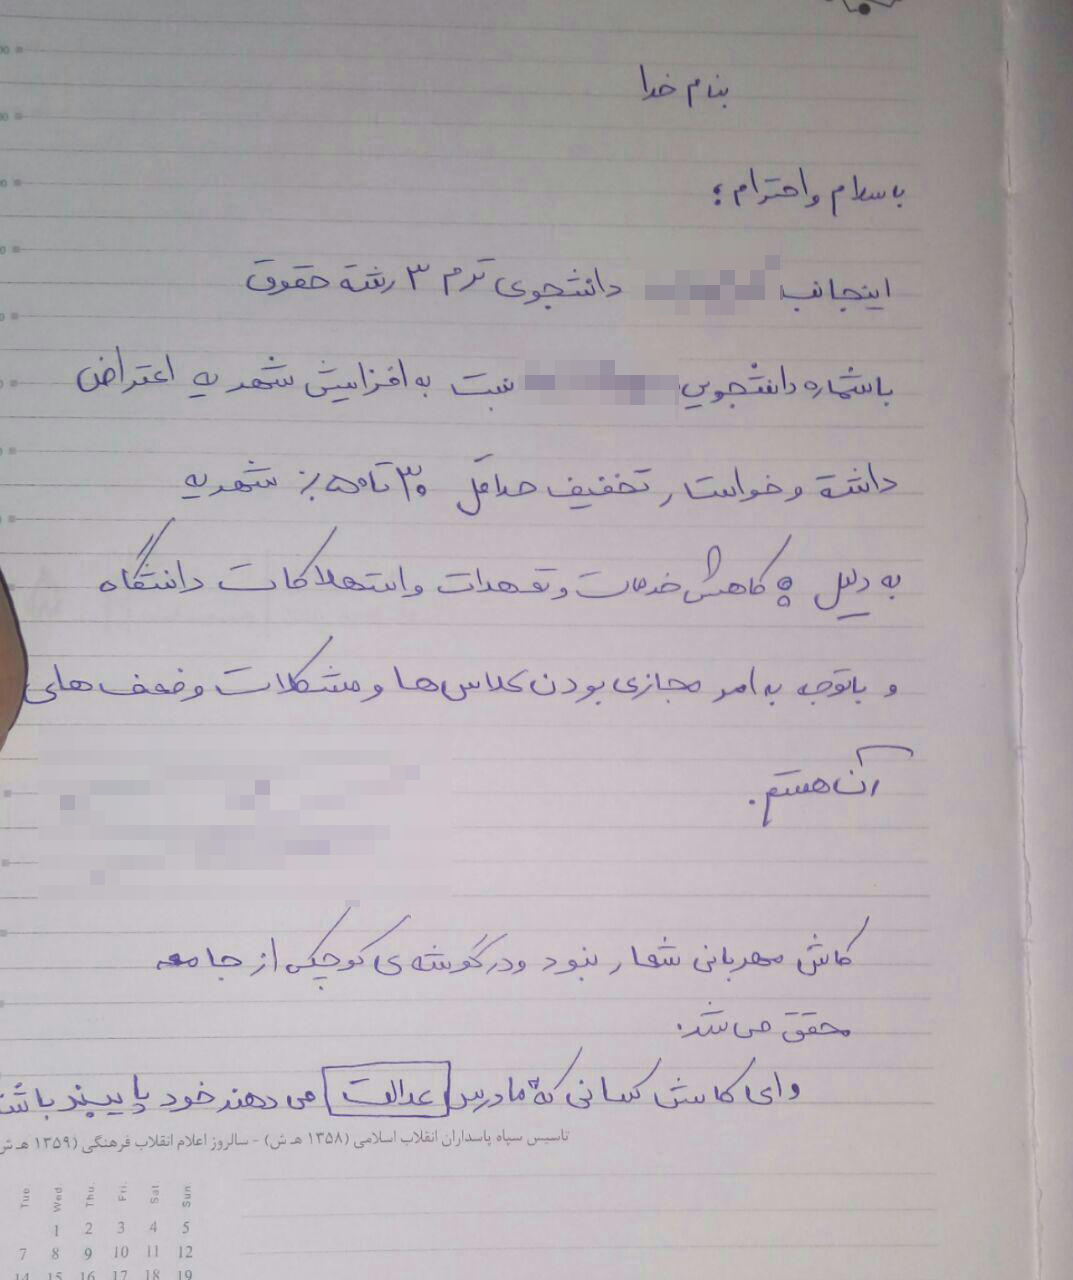 بنام خدا
با سلام و احترام ؛
اینجانب دانشجوی ترم ۳ رشته حقوق
با شماره دانشجویی نسبت به افزایش شهریه اعتراض
داشته و خواستار تخفیف حداقل ۳۰ تا ۵۰٪ شهریه
به دلیل کاهش خدمات و تعهدات و استهلاکات دانشگاه
و با توجه به امر مجازی بودن کلاس ها و مشکلات و ضعف های
آن هستم.
کاش مهربانی شعار نبود و در گوشه ی کوچکی از جامعه
محقق می شد.
و ای کاش کسانی که به ما درس عدالت می دهند خود پایبند باشند
تاسیس سپاه پاسداران انقلاب اسلامی (۱۳۵۸ هـ ش) - سالروز اعلام انقلاب فرهنگی (۱۳۵۹ هـ ش
Tue Wed Thu. Fri. Sat Sun
1 2 3 4 5
7 8 9 10 11 12
14 15 16 17 18 19